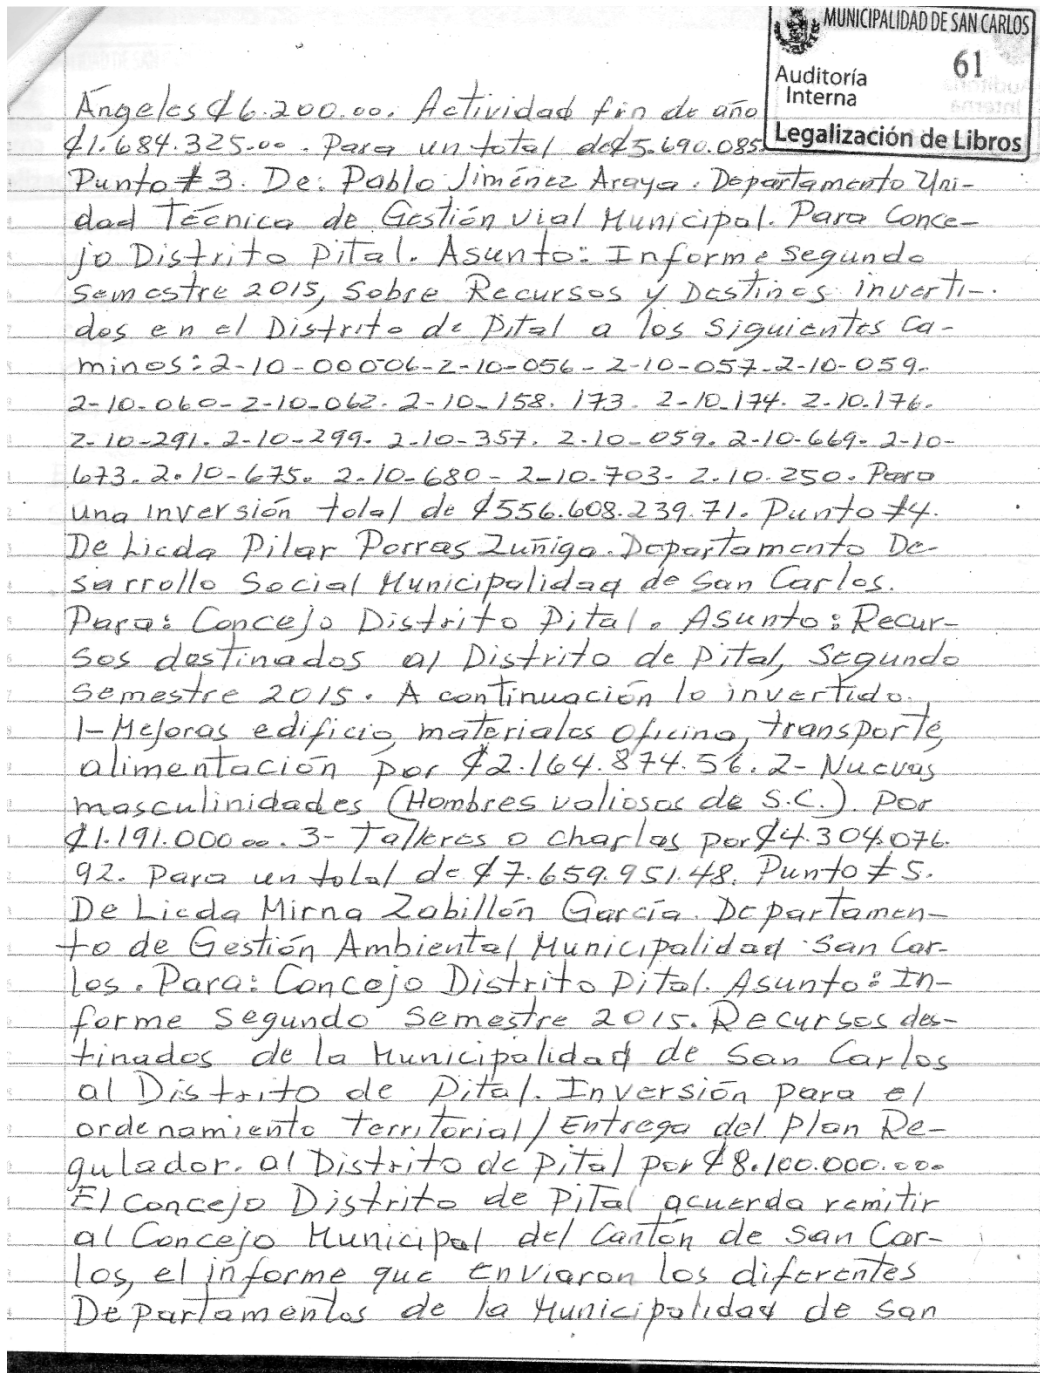 MUNICIPALIDAD DE SAN CARLOS
61
Auditoría
Interna
Legalización de Libros
Ángeles ₡6.200.00. Actividad fin de año
₡1.684.325.00. Para un total de ₡5.690.085.
Punto #3. De: Pablo Jiménez Araya. Departamento Uni-
dad Técnica de Gestión vial Municipal. Para Conce-
jo Distrito Pital. Asunto: Informe segundo
Semestre 2015, Sobre Recursos y Destinos inverti-.
dos en el Distrito de Pital a los siguientes Ca-
minos: 2-10-00006-2-10-056-2-10-057-2-10-059-
2-10-060-2-10-062. 2-10-158. 173. 2-10-174. 2-10.176.
2-10-291. 2-10-299. 2-10-357. 2.10-059. 2-10-669. 2-10-
673. 2.10-675. 2-10-680-2-10-703-2.10.250. Para
una inversión total de ₡556.608.239.71. Punto #4.
De Licda Pilar Porras Zuñiga. Departamento De-
sarrollo Social Municipalidad de San Carlos.
Para: Concejo Distrito Pital. Asunto: Recur-
sos destinados al Distrito de Pital, Segundo
Semestre 2015. A continuación lo invertido.
1-Mejoras edificio, materiales oficina, transporte,
alimentación por ₡2.164.874.56. 2- Nuevas
masculinidades (Hombres valiosos de S.C.). Por
₡1.191.000.00. 3- Talleres o charlas por ₡4.304.076.
92. Para un total de ₡7.659.951.48. Punto #5.
De Licda Mirna Zabillón García. Departamen-
to de Gestión Ambiental Municipalidad San Car-
los. Para: Concejo Distrito Pital. Asunto: In-
forme Segundo Semestre 2015. Recursos des-
tinados de la Municipalidad de San Carlos
al Distrito de Pital. Inversión para el
ordenamiento Territorial/Entrega del Plan Re-
gulador. al Distrito de Pital por ₡8.100.000.00
El Concejo Distrito de Pital acuerda remitir
al Concejo Municipal del Cantón de San Car-
los, el informe que Enviaron los diferentes
Departamentos de la Municipalidad de San